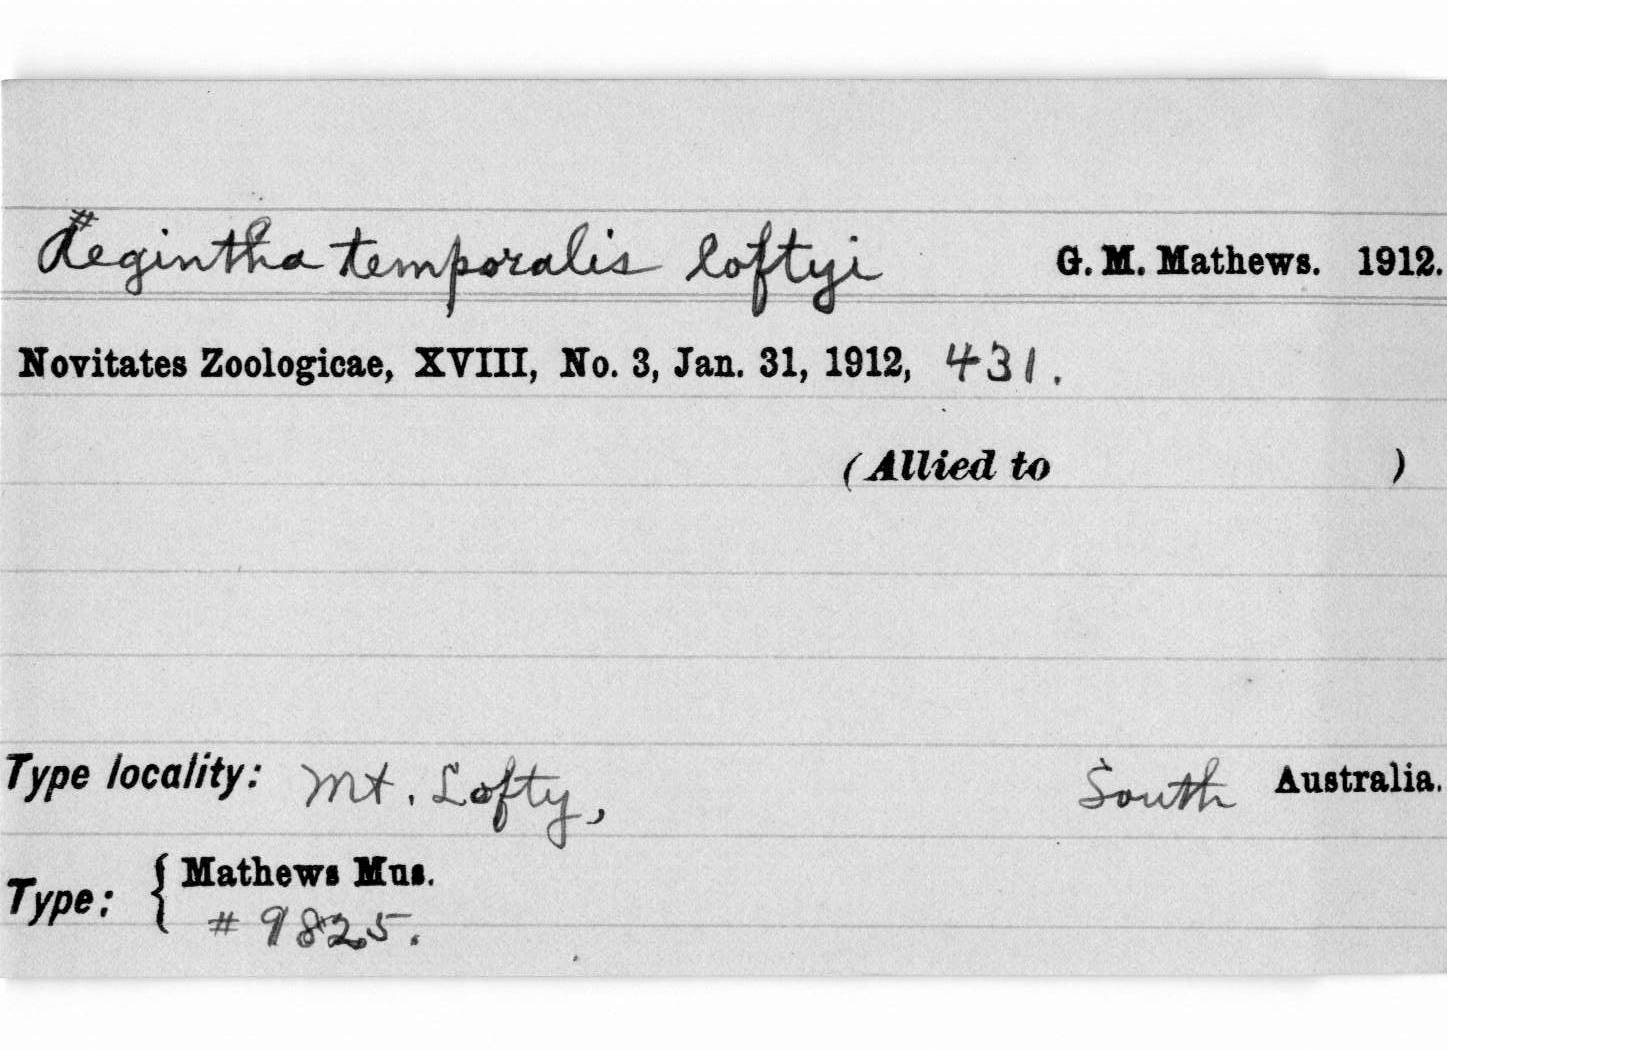 #
Aegintha temporalis loftyi G. M. Mathews. 1912.
Novitates Zoologicae, XVIII, No. 3, Jan. 31, 1912, 431.
(Allied to )
Type locality: Mt. Lofty, South Australia.
Type: { Mathews Mus.
# 9825.